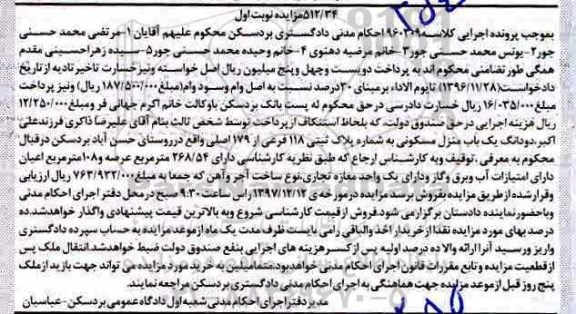 ۵۱۲/۳۴مزایده نوبت اول
بموجب پرونده اجرایی کلاسه ۹۶۰۳۰۹ احکام مدنی دادگستری بردسکن محکوم علیهم آقایان ۱-مرتضی محمد حسنی
جور۲-یونس محمد حسنی جور۳-خانم مرضیه دهنوی ۴-خانم وحیده محمد حسنی جور۵-سیده زهراحسینی مقدم
همگی طور تضامنی محکوم اند به پرداخت دویست وچهل وپنج میلیون ریال اصل خواسته ونیزخسارت تاخیر تادیه از تاریخ
دادخواست(۱۳۹۶/۱۱/۲۸) تایوم الاداء بر مبنای ۲۰درصد نسبت به اصل وام وسود وام(مبلغ ۱۸۷/۵۰۰/۰۰۰ ریال) ونیز پرداخت
مبلغ ۱۶/۰۳۵/۰۰۰ ریال خسارت دادرسی در حق محکوم له پست بانک بردسکن باوکالت خانم اکرم جهانی فر ومبلغ ۱۲/۲۵۰/۰۰۰
ریال هزینه اجرایی در حق صندوق دولت، که بلحاظ استنکاف ازپرداخت توسط شخص ثالث بنام آقای علیرضا ذاکری فرزندعلی
اکبر،دودانگ یک باب منزل مسکونی به شماره پلاک ثبتی ۱۱۸ فرعی از ۱۷۹ اصلی واقع درروستای حسن آباد بردسکن درقبال
محکوم به معرفی ،توقیف وبه کارشناس ارجاع که طبق نظریه کارشناسی دارای ۲۶۸/۵۴ مترمربع عرصه و۱۰۸مترمربع اعیان
دارای امتیازات آب وبرق وگاز ودارای یک واحد مغازه تجاری،نوع ساخت آجر وآهن که جمعا به مبلغ ۷۶۳/۹۳۲/۰۰۰ ریال ارزیابی
وقرارشده از طریق مزایده بفروش برسد مزایده در مورخه ی ۱۳۹۷/۱۲/۱۲ راس ساعت ۹:۳۰ صبح در محل دفتر اجرای احکام مدنی
وباحضور نماینده دادستان برگزار می شود.فروش از قیمت کارشناسی شروع وبه بالاترین قیمت پیشنهادی واگذار خواهدشد.ده
درصد بهای مورد مزایده نقدا از خریدار اخذ والباقی رامی بایست ظرف مدت یک ماه از موعد مزایده به حساب سپرده دادگستری
واریز ورسید آنرا ارائه والا ده درصد اولیه پس از کسر هزینه های اجرایی بنفع صندوق دولت ضبط خواهدشد.انتقال ملک پس
از قطعیت مزایده و تابع مقررات قانون اجرای احکام مدنی خواهدبود.متمایلین به خرید مورد مزایده می تواند جهت بازدید از ملک
پنج روز قبل از موعد مزایده جهت هماهنگی به اجرای احکام مدنی دادگستری بردسکن مراجعه نمایند.
مدیر دفتر اجرای احکام مدنی شعبه اول دادگاه عمومی بردسکن-عباسیان